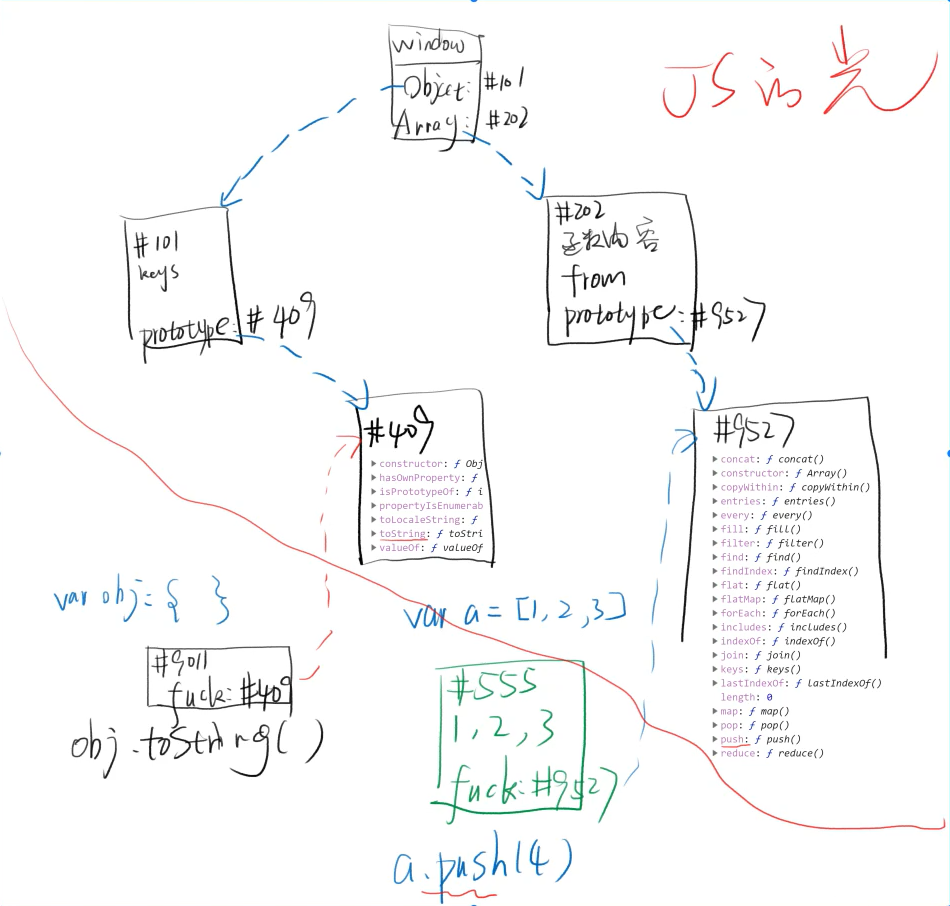 window
Objcet: #101
Array: #202
JS的光
#101
keys
prototype: #409
#202
函数内容
from
prototype: #9527
#409
constructor: ƒ Obj
hasOwnProperty: ƒ
isPrototypeOf: ƒ i
propertyIsEnumerab
toLocaleString: ƒ
toString: ƒ toStri
valueOf: ƒ valueOf
#9527
concat: ƒ concat()
constructor: ƒ Array()
copyWithin: ƒ copyWithin()
entries: ƒ entries()
every: ƒ every()
fill: ƒ fill()
filter: ƒ filter()
find: ƒ find()
findIndex: ƒ findIndex()
flat: ƒ flat()
flatMap: ƒ flatMap()
forEach: ƒ forEach()
includes: ƒ includes()
indexOf: ƒ indexOf()
join: ƒ join()
keys: ƒ keys()
lastIndexOf: ƒ lastIndexOf()
length: 0
map: ƒ map()
pop: ƒ pop()
push: ƒ push()
reduce: ƒ reduce()
var obj = { }
#9011
fuck: #409
obj.toString()
var a = [1, 2, 3]
#555
1, 2, 3
fuck: #9527
a.push(4)